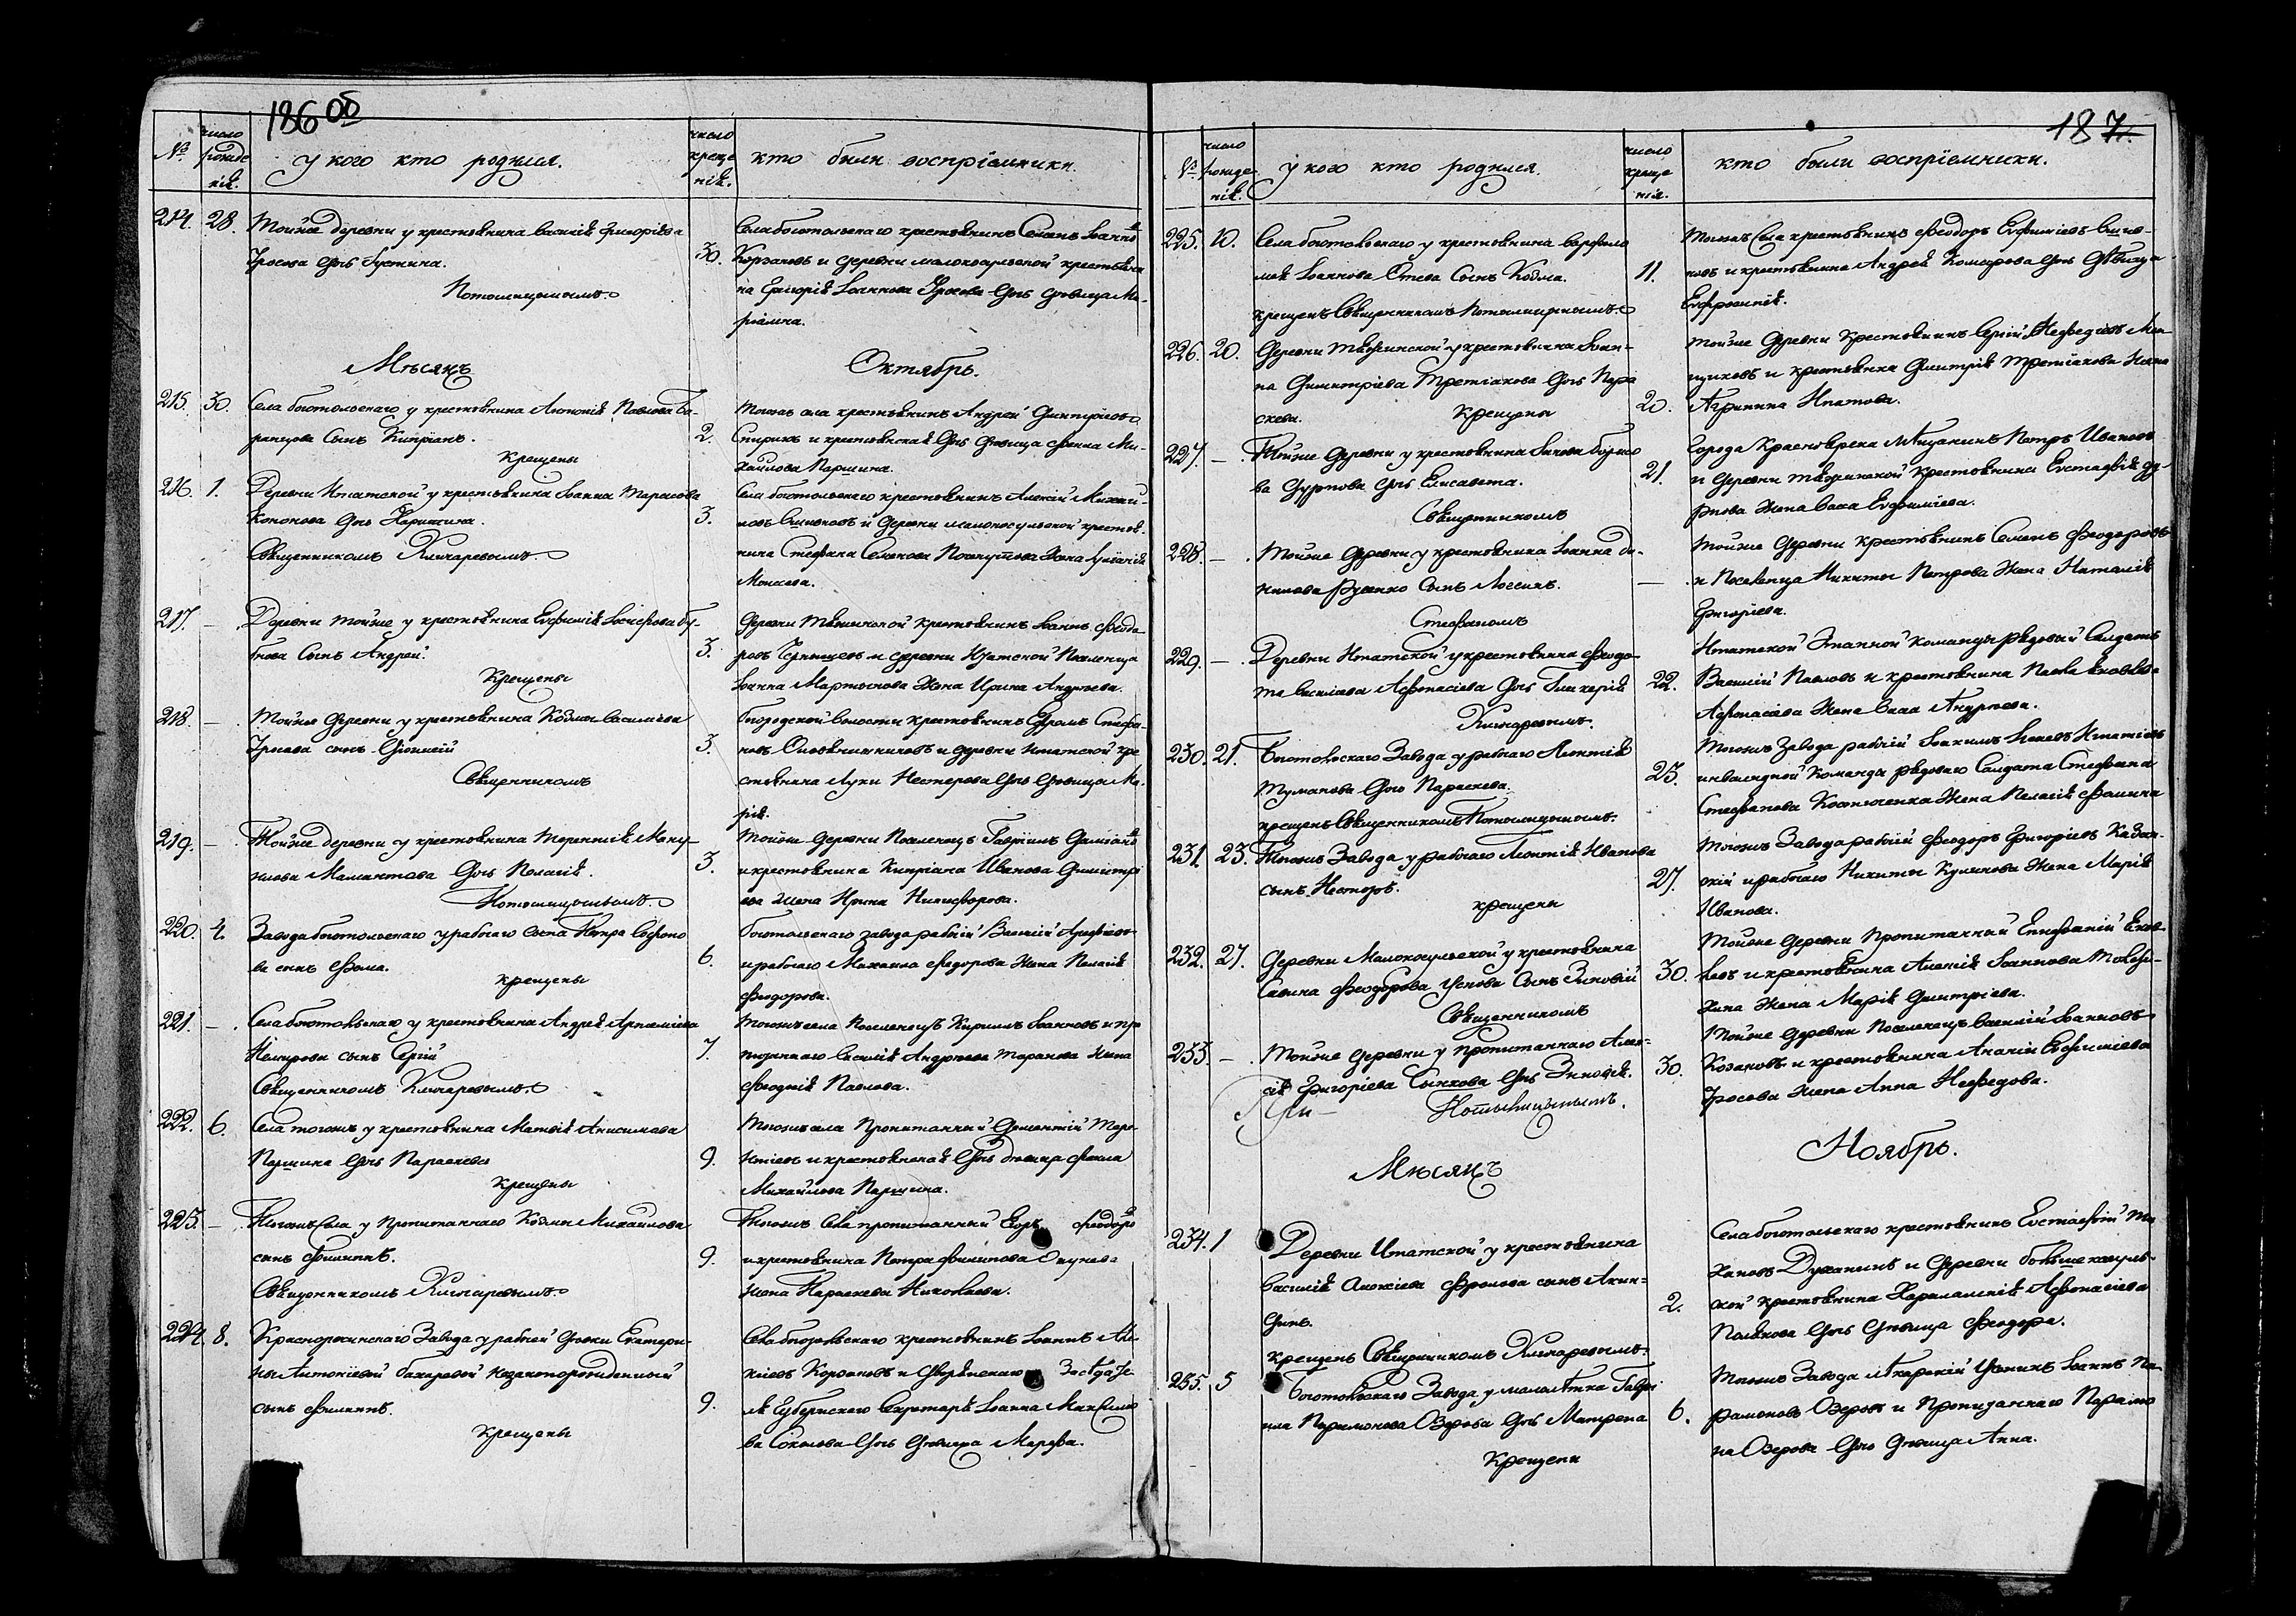 186 об
№
число рождения.
у кого кто родился.
число крещенія.
кто были воспріемники.
214. 28. Тойже деревни у крестьянина Василія Григорьева
Уросова дочь Іустина.
Потошицынымъ.
30.
Села боготольскаго крестьянинъ Семенъ Іоанновъ
Корзаковъ и деревни малокосульской крестьяни-
на Григорія Іоаннова Уросова дочь девица Ма-
ріамна.
Мѣсяцъ
Октябрь.
215. 30. Села боготольскаго у крестьянина Антонія Павлова
сынъ Кипріанъ.
Крещены
2.
Тогожъ села крестьянинъ Андрей Димитріевъ
Спиринъ и крестьянская дочь девица Фекла Ми-
хайлова Паршина.
216. 1. Деревни Итатской у крестьянина Іоанна Тарасова
Кононова дочь Харитина.
Священникомъ Ключаревымъ.
3.
Села боготольскаго крестьянинъ Алексій Михай-
ловъ и деревни малокосульской крестьян-
нина Стефана Семенова жена Іуліанія
Моисеева.
217. — Деревни тойже у крестьянина Евфимія Іосифова Бу-
бнова сынъ Андрей.
Крещены
3.
Деревни крестьянинъ Іоаннъ Феодо-
ровъ Чернышевъ и деревни Итатской Поселенца
Іоанна Мартынова жена Ирина Андреева.
218. — Тойже деревни у крестьянина Козмы Васильева
Уросова сынъ Діонисій
Священникомъ
3.
волости крестьянинъ Стефа-
новъ и деревни Итатской кре-
стьянина Луки Нестерова дочь девица Ма-
рія.
219. — Тойже деревни у крестьянина Терентія Ману-
илова Мамонтова дочь Пелагія.
Потошицынымъ.
3.
Тойже деревни Поселенецъ Гавріилъ Даміановъ
и крестьянина Кипріана Иванова Димитрі-
ева жена Ирина Никифорова.
220. 4. Завода боготольскаго у рабочаго сына Петра Софоно-
ва сынъ Фома.
крещены
6.
боготольскаго завода рабочій Василій
и рабочаго Михаила Федорова жена Пелагія
Феодорова.
221. — Села боготольскаго у крестьянина Андрея Артеміева
Немирова сынъ Сергій
Священникомъ Ключаревымъ.
7.
Тогожъ села Поселенецъ Кириллъ Іоанновъ и про-
питаннаго Василія Андреева Таранова жена
Феодосія Павлова.
222. 6. Села тогожъ у крестьянина Матвія Анисимова
Паршина дочь Параскева
Крещены
9.
Тогожъ села Пропитанный Дементій Тере-
нтіевъ и крестьянская дочь девица Фекла
Михайлова Паршина.
223. — Тогожъ села у пропитаннаго Козмы Михайлова
сынъ Филиппъ.
Священникомъ Ключаревымъ.
9.
Тогожъ села пропитанный Егоръ Феодоровъ
и крестьянина Петра Филипова
жена Параскева Николаева.
224. 8. Краснореченскаго Завода у рабочей дочки Екатери-
ны Антоніевой незаконнорожденный
сынъ Филиппъ.
Крещены
9.
Села боготольскаго крестьянинъ Іоаннъ Але-
ксіевъ Корзаковъ и Дворянскаго Заседате-
ля Губернскаго Секретаря Іоанна Максимо-
ва Соколова дочь девица Марфа.
187.
№
число рожденія.
у кого кто родился.
число крещенія.
кто были воспріемники.
225. 10. Села боготольскаго у крестьянина Варфоло-
мея Іоаннова сынъ Козма.
крещенъ Священникомъ Потошицынымъ.
11.
Тогожъ села крестьянинъ Феодоръ Евфиміевъ
и крестьянина Андрея Комарова дочь Девица
Евфросинія.
226. 20. Деревни у крестьянина Іоан-
на Димитріева Третіакова дочь Пара-
скева.
крещены
20.
тойже деревни крестьянинъ Сергій Нефедовъ
и крестьянина Димитрія Третіакова жена
Агрипина Ипатова.
227. — Тойже деревни у крестьянина Іакова
Дурнова дочь Елисавета.
Священникомъ
21.
города Красноярска мѣщанинъ Петръ Ивановъ
и деревни крестьянина Евстафія Ду-
рнова жена Васса Евфиміева.
228. — Тойже деревни у крестьянина Іоанна Да-
нилова Руденко сынъ
Стефаномъ
—
тойже деревни крестьянинъ Семенъ Феодоровъ
и Поселенца Никиты Петрова жена Наталія
Григорьева.
229. — Деревни Итатской у крестьянина Феодо-
та Василіева Афонасіева дочь Гликерія
Ключаревымъ.
22.
Итатской Этапной Команды рядовый Солдатъ
Василій Павловъ и крестьянина Павла Яковлева
Афонасіева жена Васса Андреева.
230. 21. Боготольскаго Завода у рабочаго Леонтія
Туманова дочь Параскева.
крещенъ Священникомъ Потошицынымъ.
23.
Тогожъ Завода рабочій Іоакимъ
инвалидной Команды рядоваго Солдата Стефана
Стефанова жена Пелагія Фомина
231. 23. Тогожъ Завода у рабочаго Леонтія Иванова
сынъ Несторъ.
крещены
27.
Тогожъ Завода рабочій Феодоръ Григорьевъ Казан-
скій и рабочаго Никиты жена Марія
Иванова.
232. 27. Деревни Малокосульской у крестьянина
Саввина Феодорова сынъ Зиновій
Священникомъ
30.
Тойже деревни Пропитанный Епифаній Яков-
левъ и крестьянина Алексія Іоаннова
жена Марія Димитріева.
233. — Тойже деревни у пропитаннаго Алек-
сія Григоріева Сычкова дочь Зиновія.
Потошицынымъ.
30.
Тойже деревни Поселенецъ Василій Іоанновъ
Козаковъ и крестьянина Ананіи Евфиміева
Уросова жена Анна Нефедова.
При-
Мѣсяцъ
Ноябрь.
234. 1 Деревни Итатской у крестьянина
Василія Алексіева Фролова сынъ Акин-
динъ.
крещенъ Священникомъ Ключаревымъ.
2.
Села боготольскаго крестьянинъ Евстафій
и деревни большекосуль-
ской крестьянина Харалампія Афонасіева
Полякова дочь девица Феодора.
235. 5 Боготольскаго Завода у малолѣтка Гаври-
ила Парамонова Озерова дочь Матрена
Крещены
6.
Тогожъ Завода Лѣкарскій Ученикъ Іоаннъ Па-
рамоновъ Озеровъ и Пропитаннаго Парамо-
на Озерова дочь девица Анна.